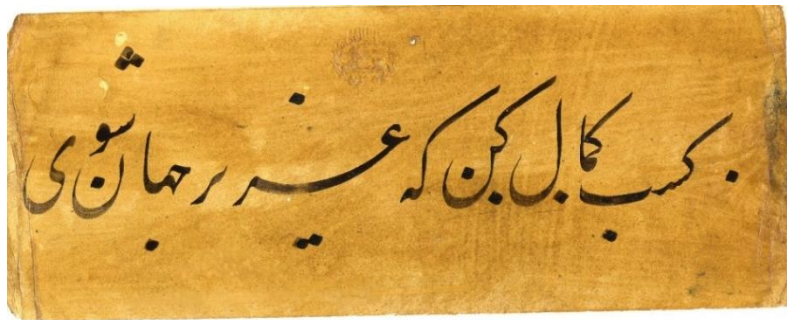 کسب کمال کن که عزیز جهان شوی